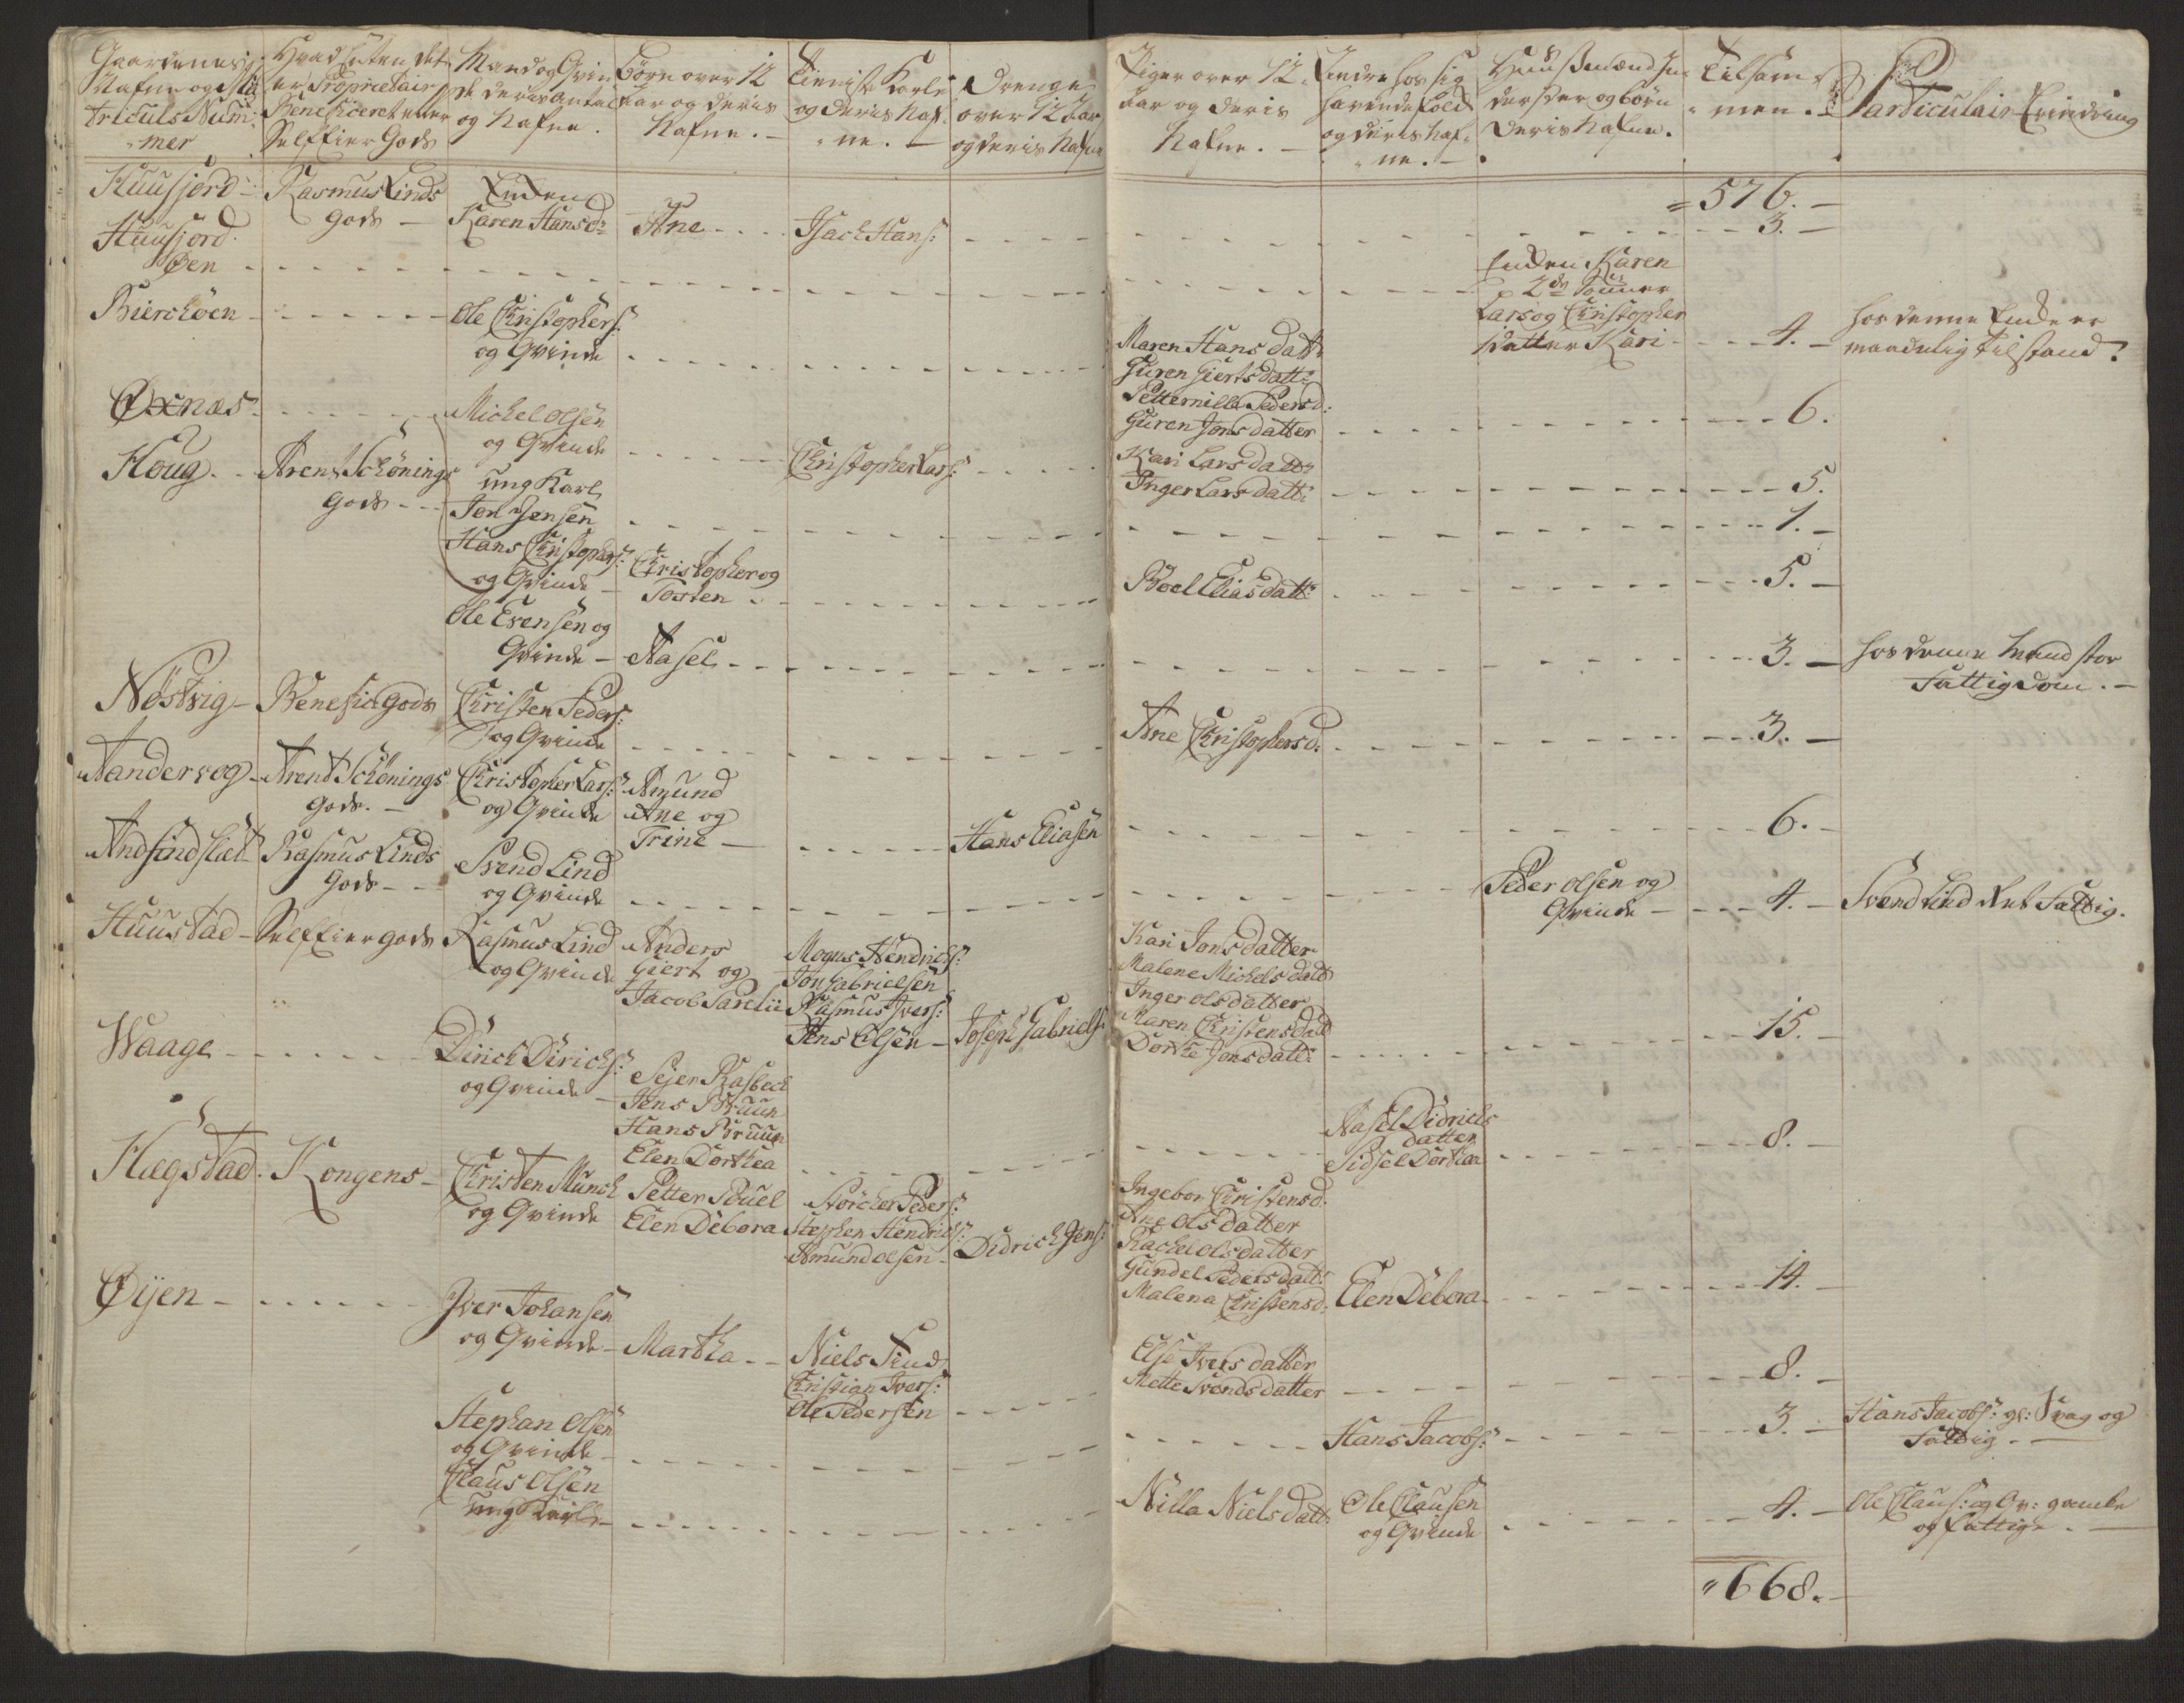 Gaardenes
Nafne og Ma
triculs Num
mer
Hvad heller det
er Proprietair
Beneficeret eller
Selfeier Gods
Mand og Qvin
de deris antal
og Nafne.
Børn over 12
Aar og deris
Nafne.
Tieniste Karle
og deris Naf
ne.
Drenge
over 12 Aar
og deris Nafne
Piger over 12
Aar og deris
Nafne.
Andre hos sig
havende Folck
og deris Naf
ne.
Huusmænd In
derster og børn
deris Nafne.
Tilsam
men.
Particulair Erindring
576.
Huusjord
Rasmus Linds
Gods
Enken
Karen Hansd:
Ane
Isach Hans:
3.
Huusjord
Øen
Enken Karen
2de Sønner
Lars og Christopher
datter Kari
4.
hos denne Enke er
maadelig tilstand.
Bierchöen
Ole Christophers:
og Qvinde
Maren Hans datt:
Guren Giertsdatt:
Petternille Pedersd:
Guren Jonsdatter
6.
Øxnæs
Michel Olsen
og Qvinde
Christopher Lars:
Kari Larsdatt:
Inger Larsdatt:
5.
Houg
Arent Schönings
Gods
ung Karl
Jon Jensen
1.
Hans Christophers:
og Qvinde
Christopher og
Tosten
Boel Eliasdatt:
5.
Ole Evensen og
Qvinde
Aasel
3.
hos denne Mand stor
Fattigdom.
Nöstvig
Benefic Gods
Christen Peders:
og Qvinde
Ane Christophersd:
3.
Aandervog
Arent Schönings
Gods.
Christopher Lars:
og Qvinde
Amund
Ane og
Trine
Hans Eliasen
6.
Andfindslæt
Rasmus Linds
Gods
Svend Lind
og Qvinde
Peder Olsen og
Qvinde
4.
Svend Lind Ret Fattig.
Huustad
Selfeier Gods
Rasmus Lind
og Qvinde
Anders
Giert og
Jacob Parelii
Mogns Hendrichs:
Jon Gabrielsen
Rasmus Ivers:
Jens Olsen
Joseph Gabriels:
Kari Jonsdatter
Malene Michelsdatt
Inger Olsdatter
Maren Christensdatt
Dorthe Jonsdatt:
15.
Waage
Dirich Dirichs:
og Qvinde
Sejer Rasbech
Jens Bruun
Hans Bruun
Elen Dorthea
Aasel Didrichs
datter
Sidsel Dorthea
8.
Hægstad
Kongens
Christen Munch
og Qvinde
Petter Buel
Elen Debora
Störcher Peders:
Stephen Hendrichs:
Amund Olsen
Didrich Jens:
Ingebor Christensd:
Ane Olsdatter
Rachel Olsdatter
Gundel Pedersdatt:
Malena Christensd:
Elen Debora
14.
Øijen
Iver Johansen
og Qvinde
Martha
Niels Find
Christian Ivers:
Ole Pedersen
Else Iversdatter
Mette Svendsdatter
8.
Stephan Olsen
og Qvinde
Hans Jacobs:
3.
Hans Jacobs: gl: Svag og
Fattig.
Claus Olsen
ung Karl
Nilla Nielsdatt:
Ole Clausen
og Qvinde
4.
Ole Claus: og Qv: gamle
og fattige.
668.